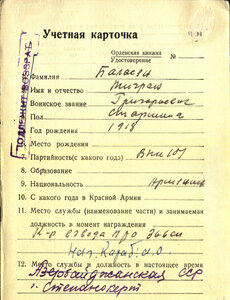 Учетная карточка
Орденская книжка
Удостоверение №
Фамилия Баласян
Имя и отчество Тигран
Воинское звание Григорьевич
Пол Старшина
Год рождения 1918
Партийность(с какого года)
8. Образование
9. Национальность Армянин
10. С какого года в Красной Армии
11. Место службы (наименование части) и занимаемая
должность в момент награждения
К-р взвода ПТО
Наг. Караб. А.О
12. Место службы и должность в настоящее время
Азербайджанская ССР
г. Степанокерт
ПОДЛЕЖИТ ВОЗВРАТ